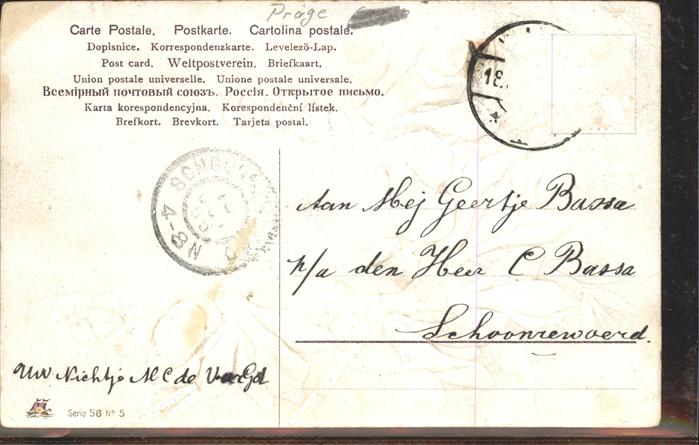 Präge
Carte Postale. Postkarte. Cartolina postale.
Dopisnice. Korrespondenzkarte. Levelező-Lap.
Post card. Weltpostverein. Briefkaart.
Union postale universelle. Unione postale universale.
Всемірный почтовый союзъ. Россія. Открытое письмо.
Karta korespondencyjna. Korespondenční lístek.
Brefkort. Brevkort. Tarjeta postal.
18
4-8 N
Aan Mej Geertje Bassa
p/a den Heer C Bassa
Schoonrewoerd.
Uw Nichtje M C de
Serie 58 No 5